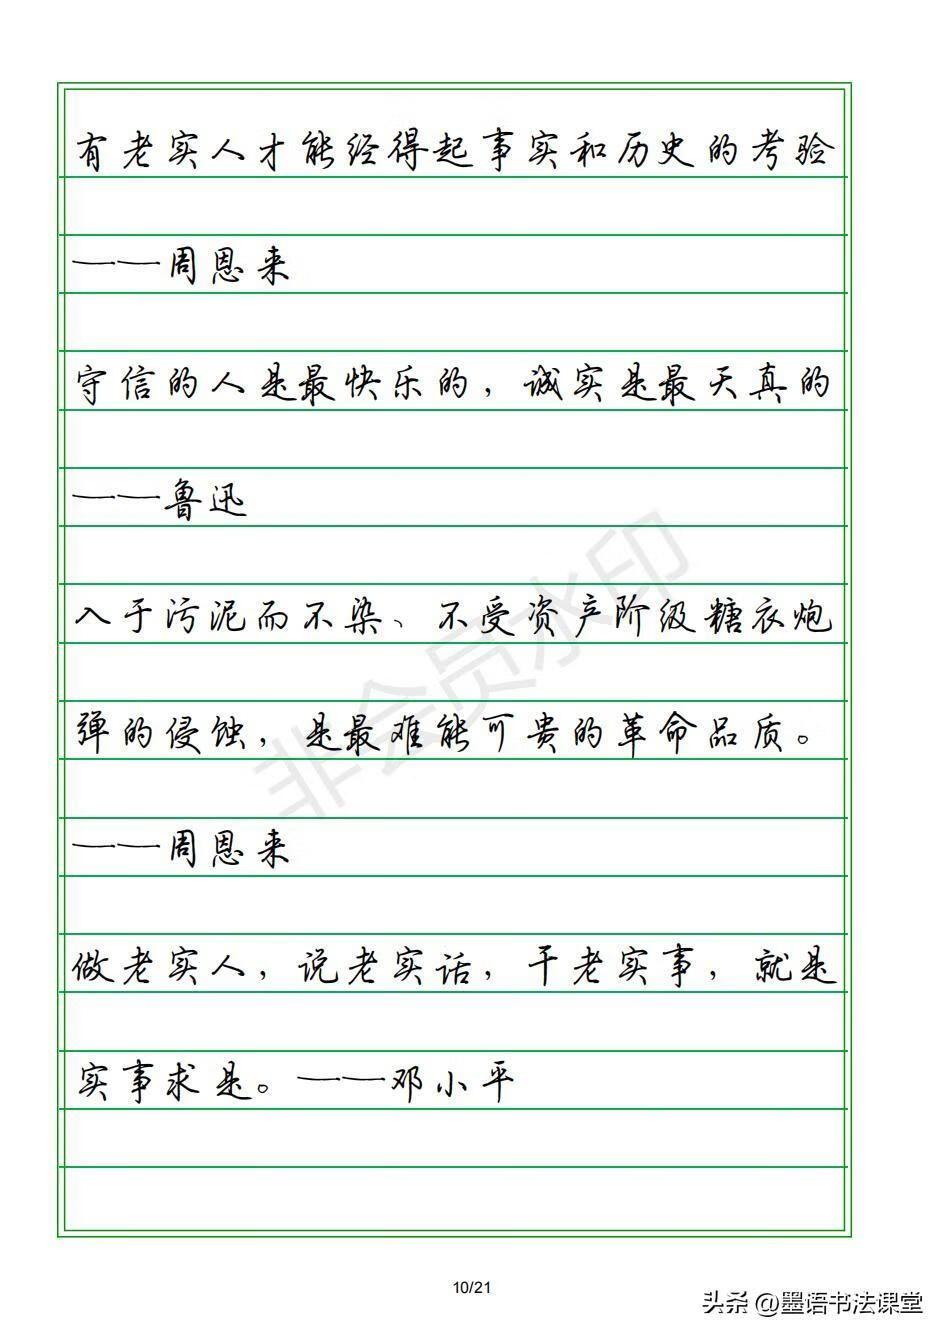 有老实人才能经得起事实和历史的考验
——周恩来
守信的人是最快乐的，诚实是最天真的
——鲁迅
入于污泥而不染、不受资产阶级糖衣炮
弹的侵蚀，是最难能可贵的革命品质。
——周恩来
做老实人，说老实话，干老实事，就是
实事求是。——邓小平
非会员水印
10/21
头条 @墨语书法课堂